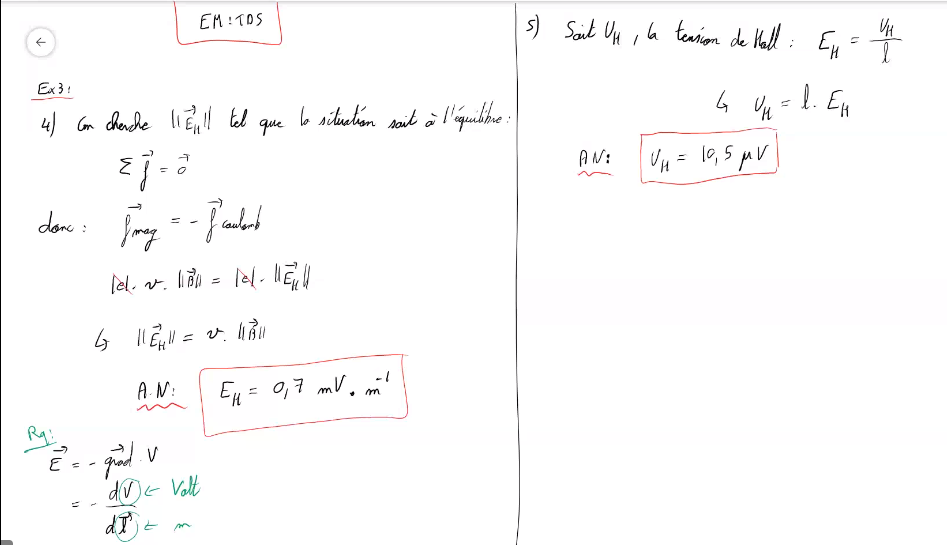 EM : TD5
Ex 3 :
4) On cherche ||E⃗_H|| tel que la situation soit à l'équilibre :
Σ f⃗ = 0⃗
donc : f⃗_mag = - f⃗_coulomb
|e|. v. ||B⃗|| = |e|. ||E⃗_H||
↳ ||E⃗_H|| = v. ||B⃗||
A.N : E_H = 0,7 mV . m⁻¹
Rq :
E⃗ = - grad⃗ . V
= - dV/dl⃗
← Volt
← m
5) Soit U_H, la tension de Hall : E_H = U_H/l
↳ U_H = l . E_H
AN : U_H = 10,5 μV